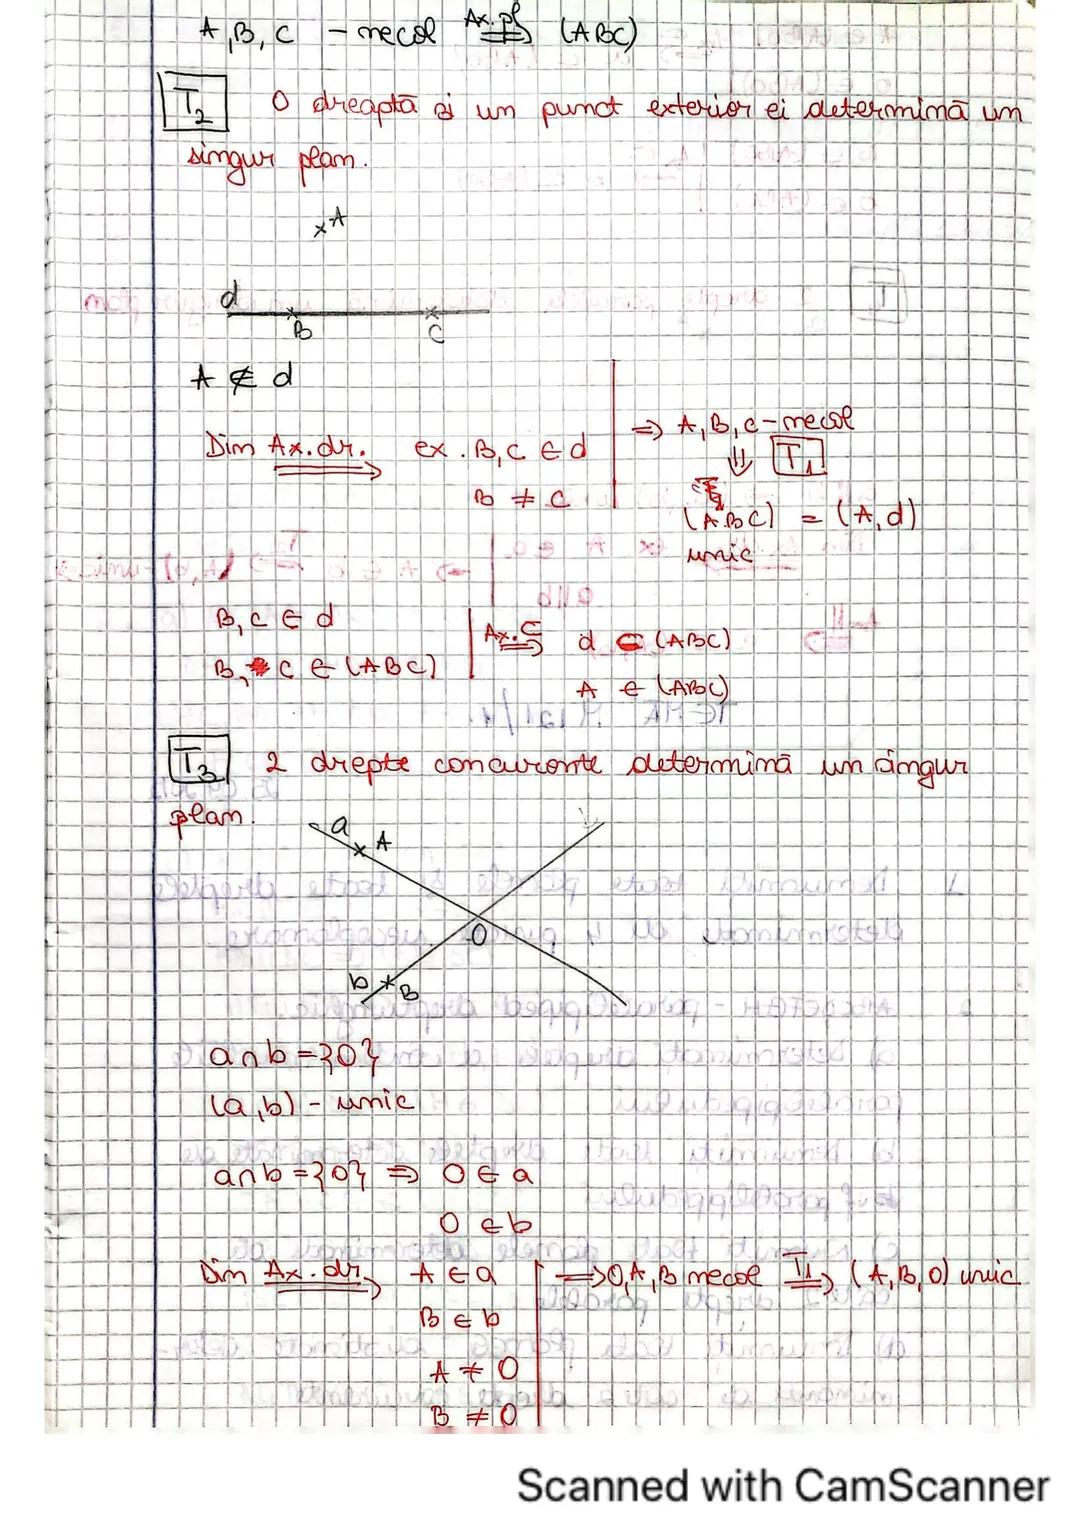 A, B, C - necol Ax. pl. ⟹ (ABC)
T2 O dreaptă și un punct exterior ei determină un
singur plan.
A
d
B C
A ∉ d
Din Ax. dr. ⟹ ex. B, C ∈ d ⟹ A, B, C - necol
B ≠ C ⇓ T1
(ABC) = (A, d)
unic
B, C ∈ d
B, C ∈ (ABC) Ax. ⊂ ⟹ d ⊂ (ABC)
A ∈ (ABC)
T3 2 drepte concurente determină un singur
plan.
a A
O
b B
a ∩ b = {O}
(a, b) - unic
a ∩ b = {O} ⟹ O ∈ a
O ∈ b
Din Ax. dr. ⟹ A ∈ a ⟹ O, A, B necol T1 ⟹ (A, B, O) unic
B ∈ b
A ≠ O
B ≠ O
Scanned with CamScanner